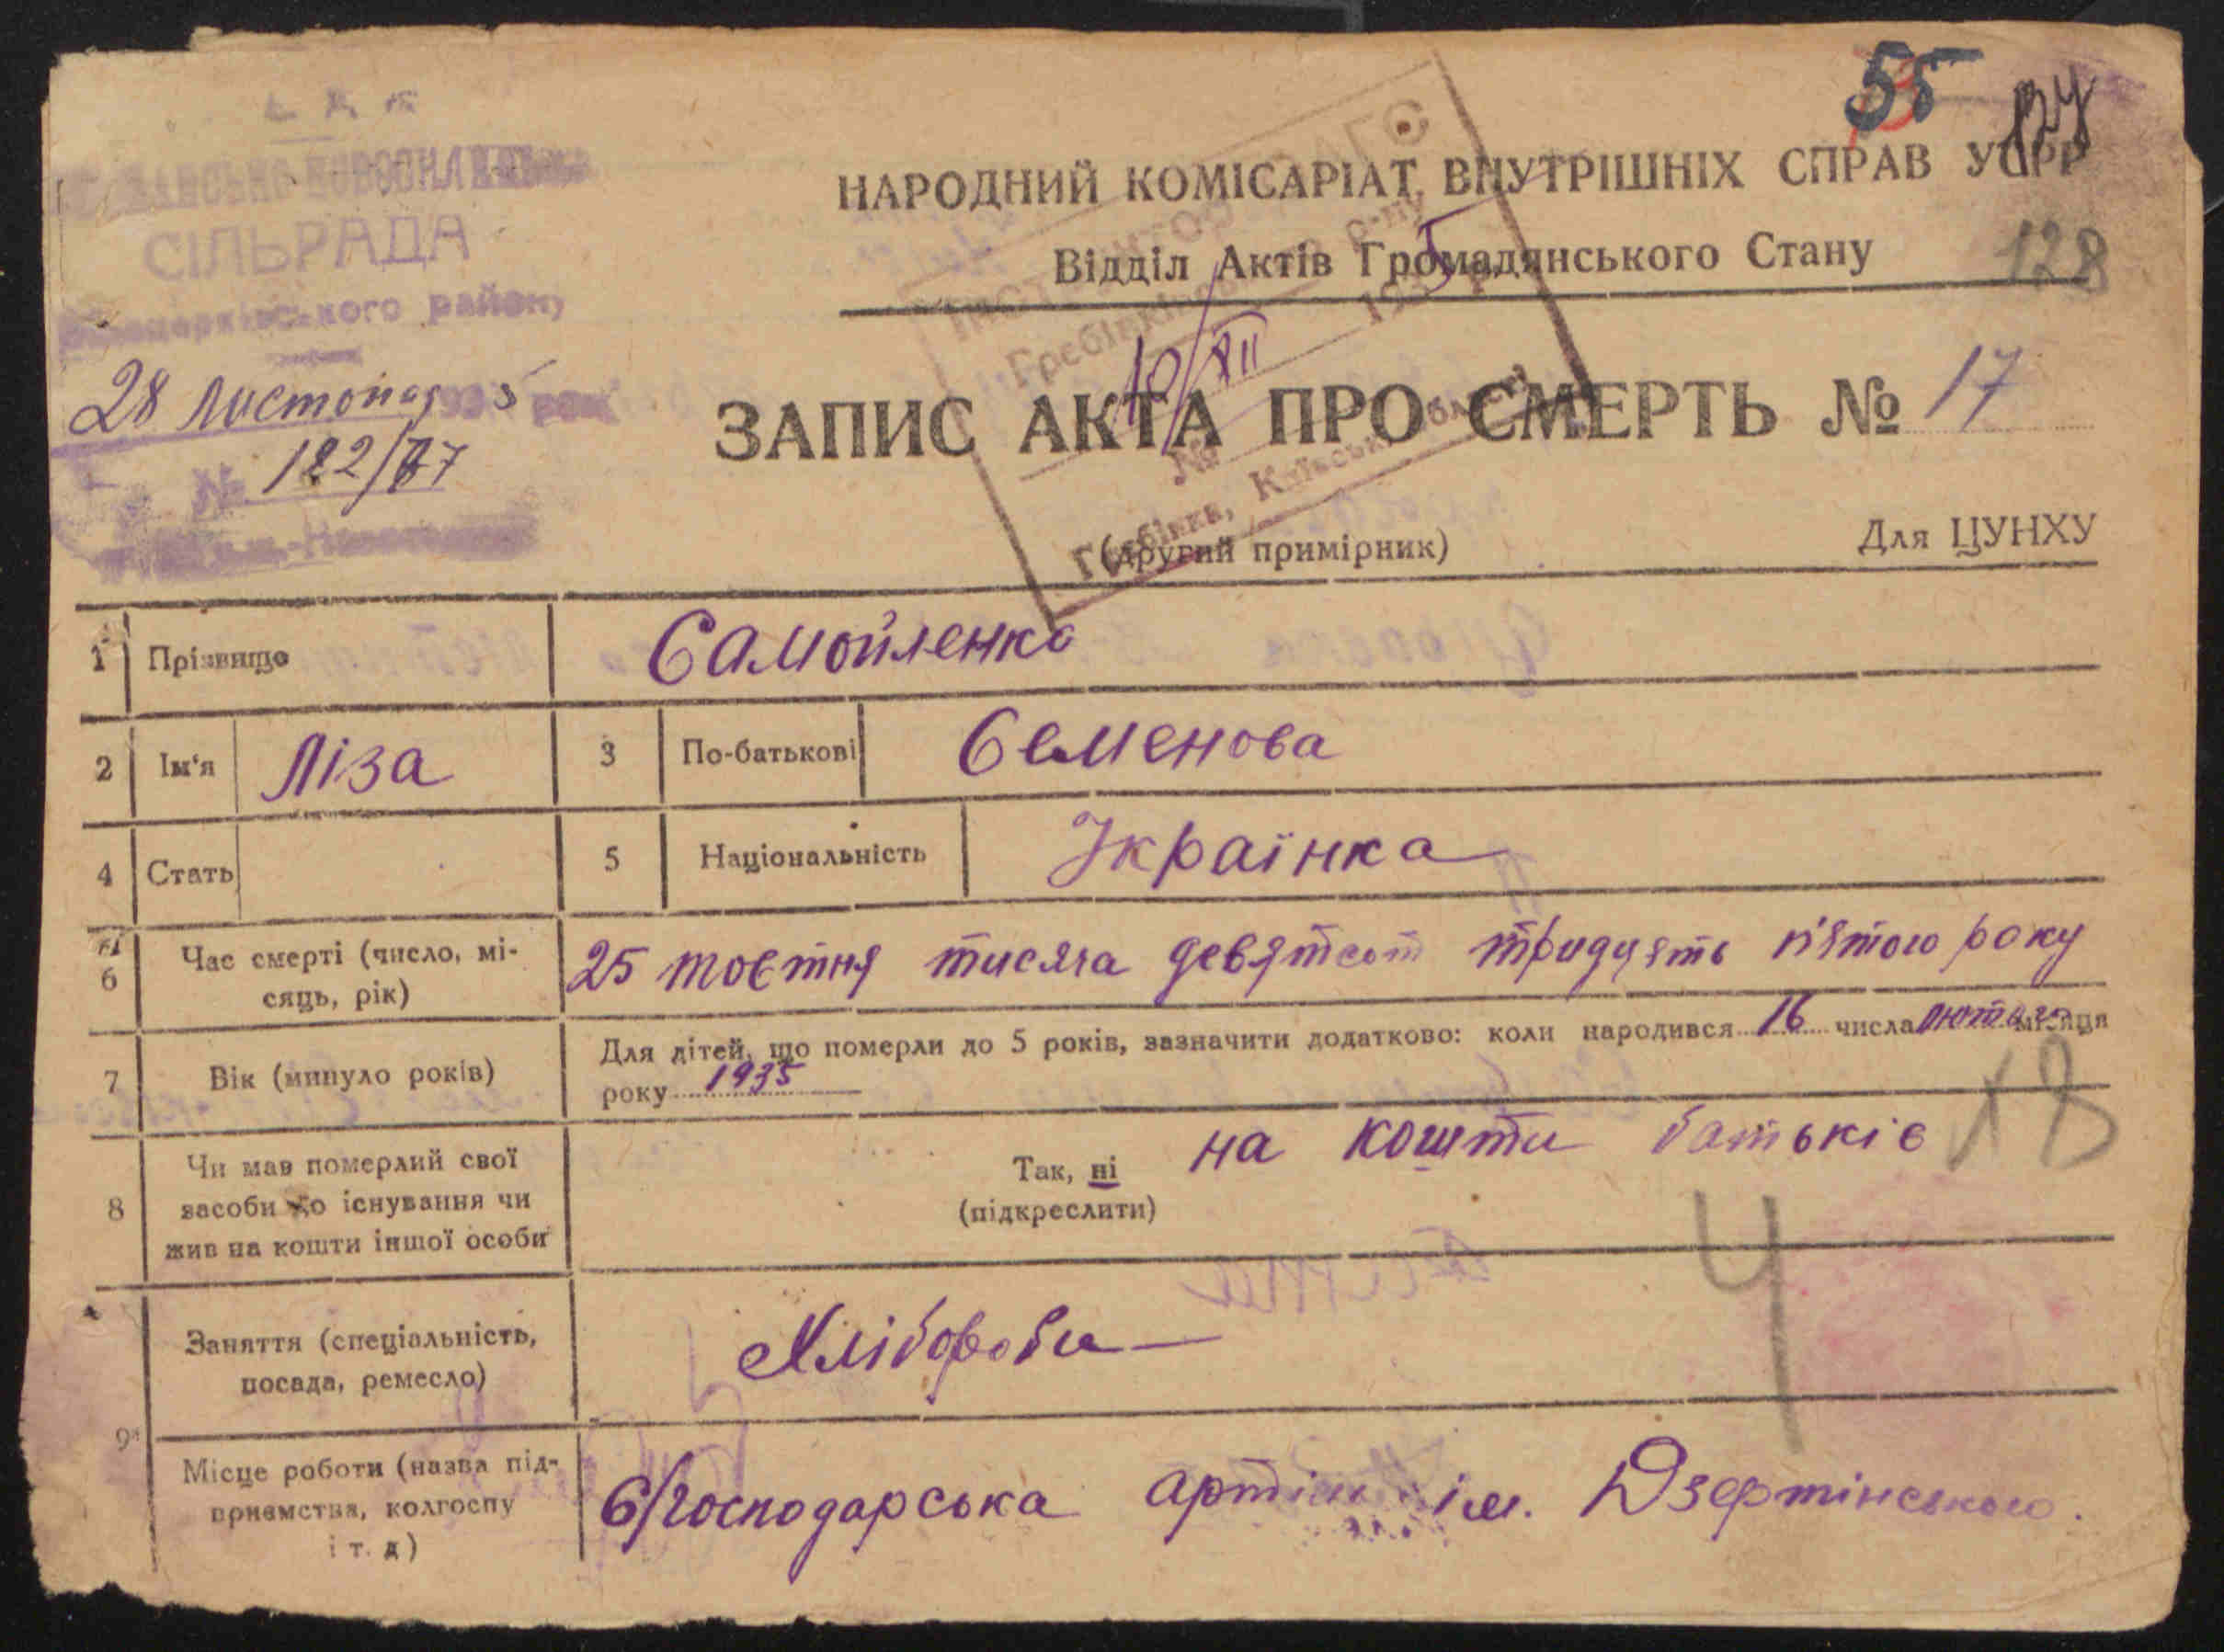 55 124
128
СІЛЬРАДА
Білоцерківського району
28 листопад 1935 рок
№ 122/77
НАРОДНИЙ КОМІСАРІАТ ВНУТРІШНІХ СПРАВ УСРР
Відділ Актів Громадянського Стану
ІНСПЕКТОР ЗАГС
Гребінківського р-ну
10/XII 1935
№
Гребінка, Київської області
ЗАПИС АКТА ПРО СМЕРТЬ № 17
(другий примірник)
Для ЦУНХУ
1 Прізвище Самойленко
2 Ім'я Ліза 3 По-батькові Семенова
4 Стать 5 Національність Українка
6 Час смерті (число, мі-
сяць, рік)
25 жовтня тисяча девятсот тридцять п'ятого року
7 Вік (минуло років)
Для дітей, що померли до 5 років, зазначити додатково: коли народився 16 числа лютого місяця
року 1935
18
8 Чи мав померлий свої
засоби до існування чи
жив на кошти іншої особи
Так, ні на кошти батьків
(підкреслити)
4
9 Заняття (спеціальність,
посада, ремесло)
Хлібороби
Місце роботи (назва під-
приємства, колгоспу
і т. д)
С/господарська артіль ім. Дзержінського.